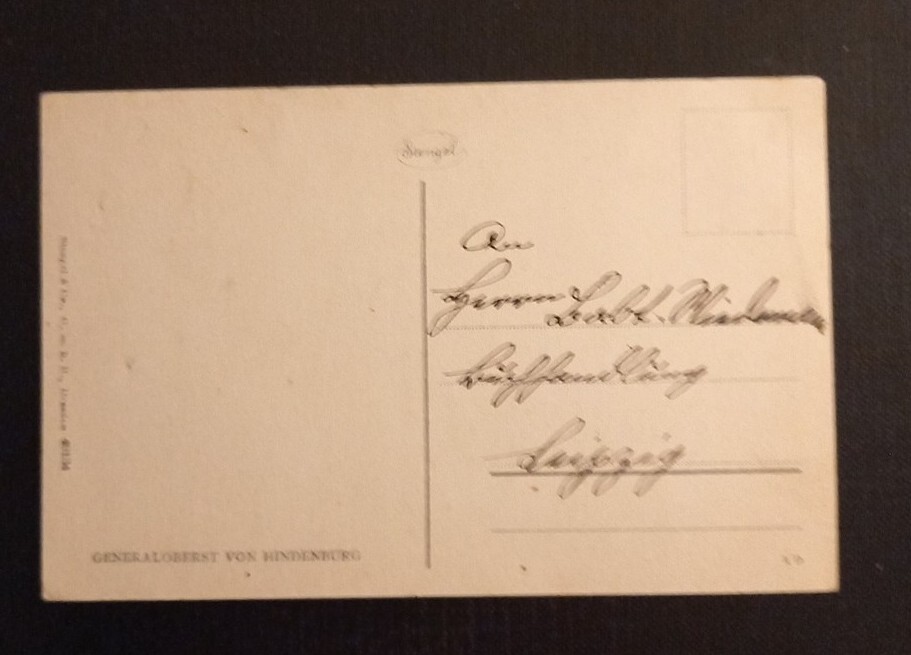 Stengel
An
Herrn
Buchhandlung
Leipzig
Stengel & Co., G. m. b. H., Dresden
GENERALOBERST VON HINDENBURG